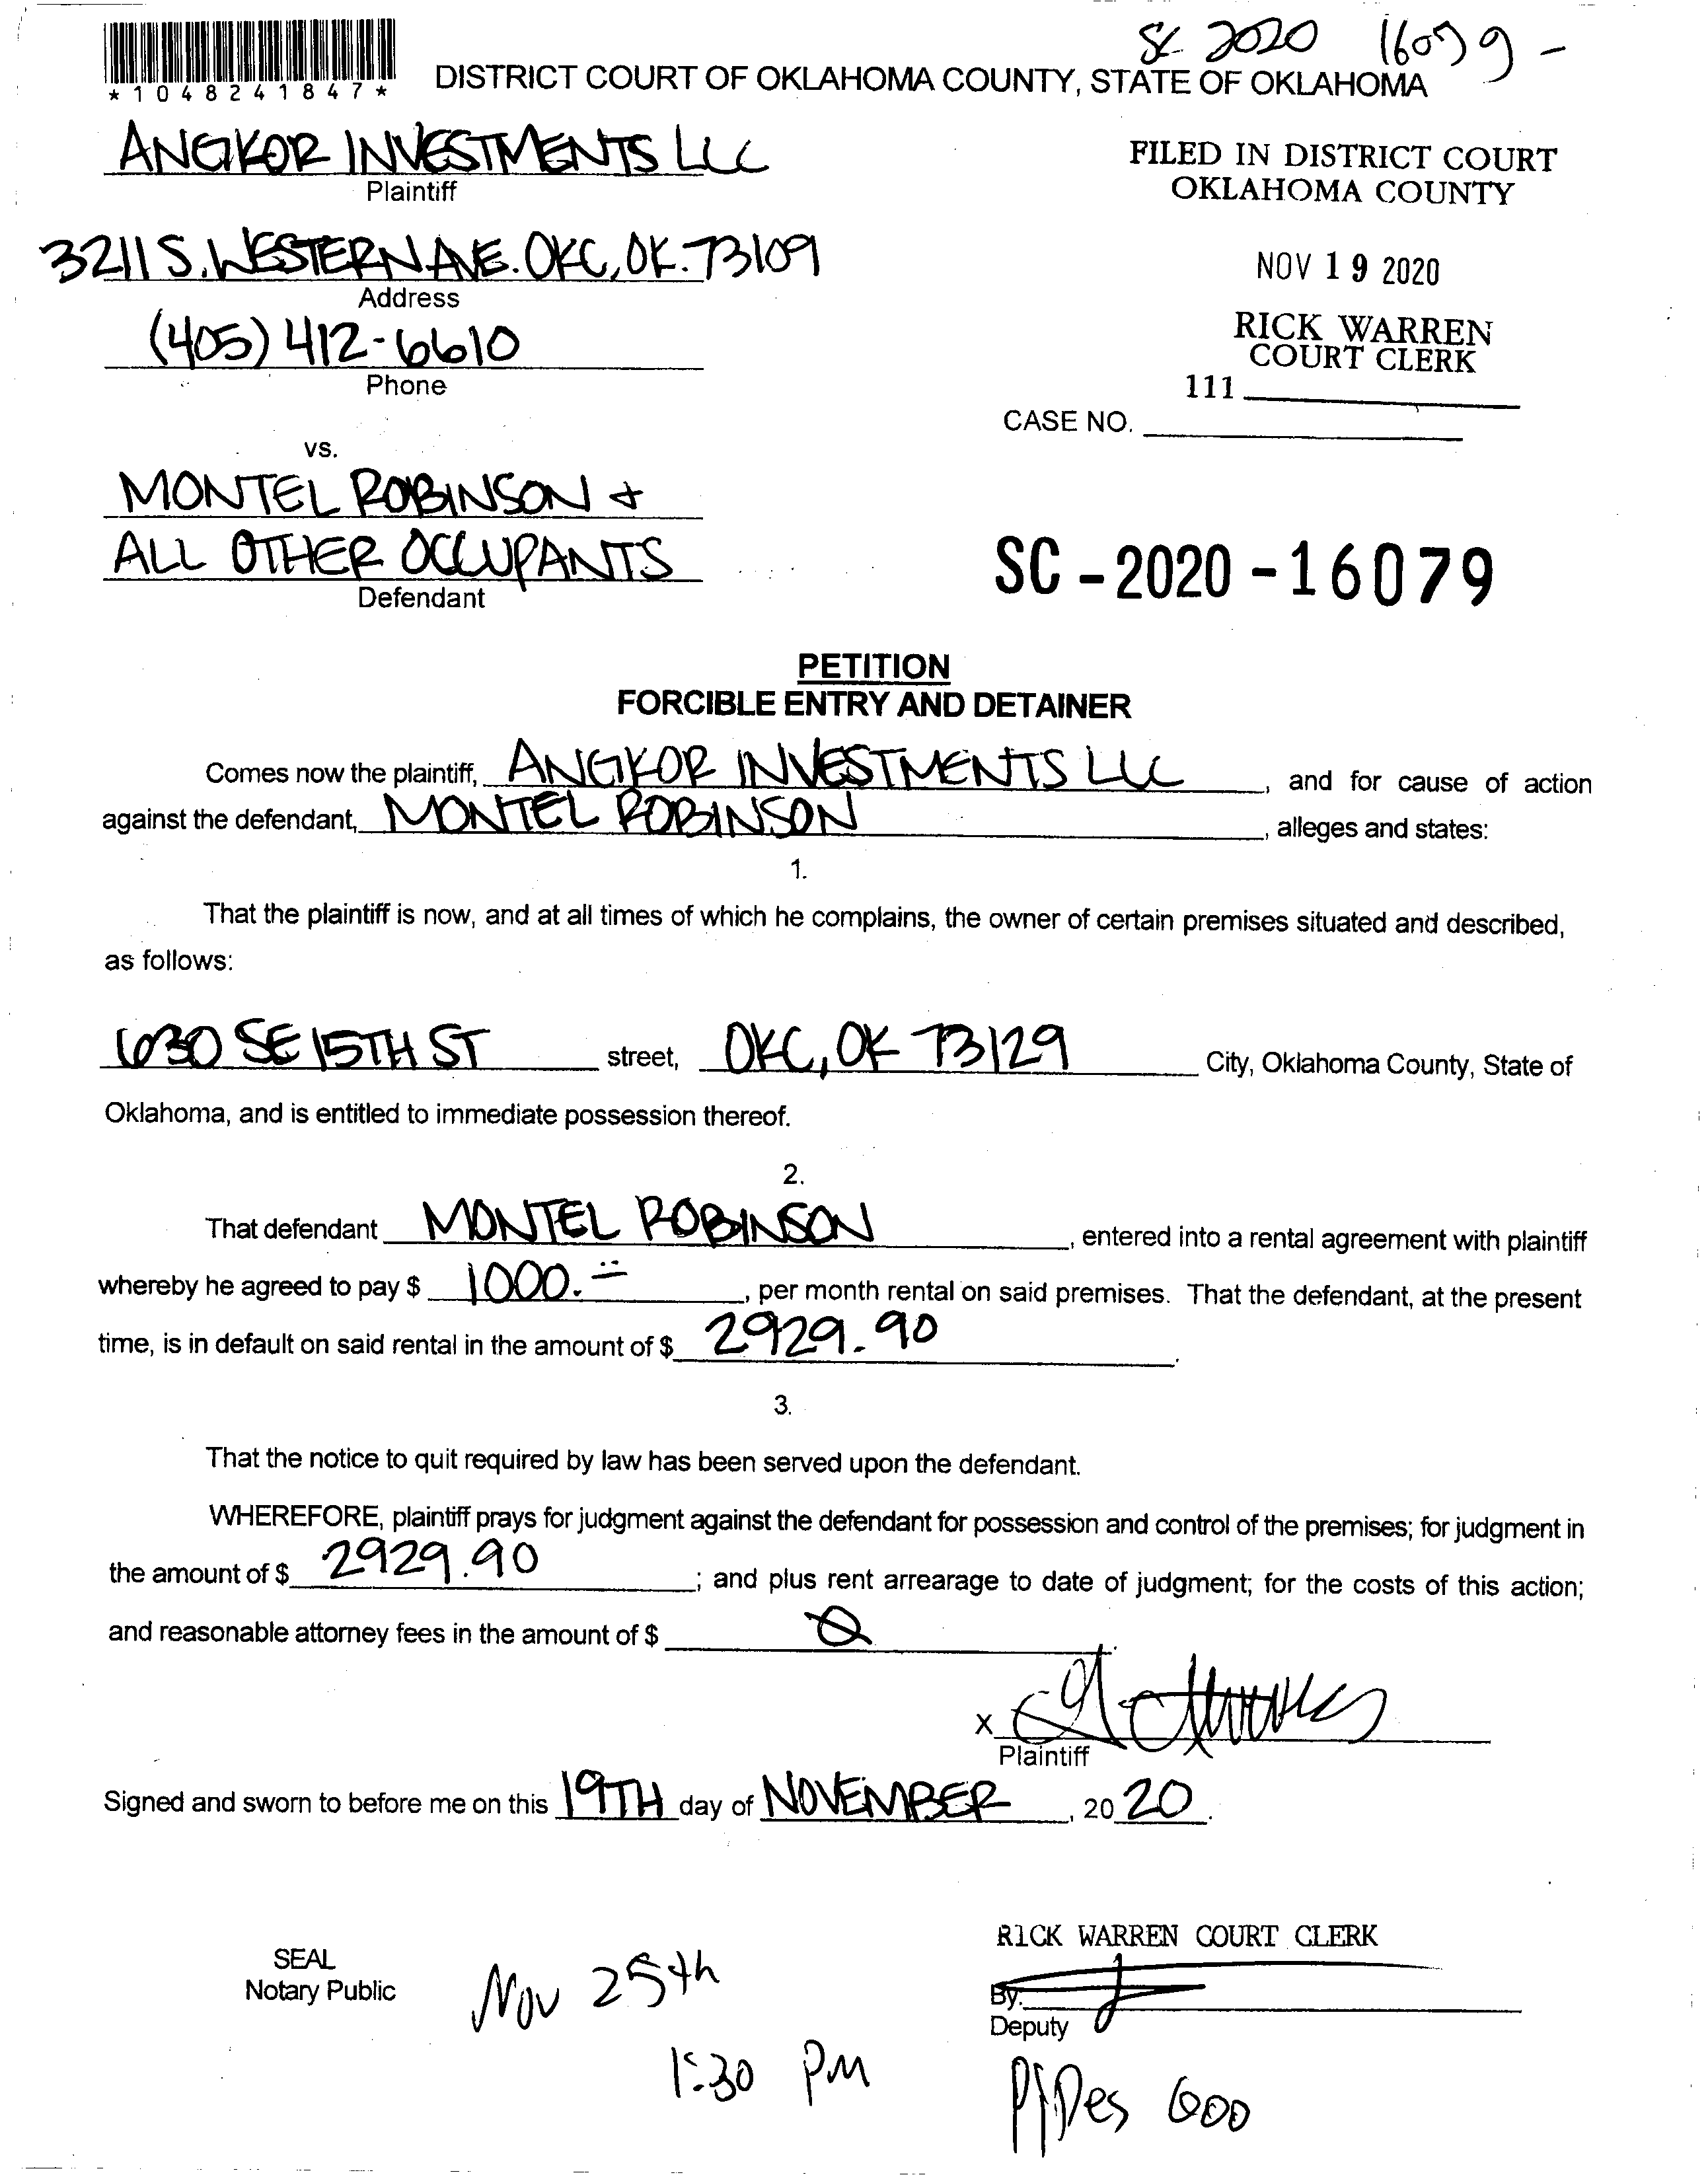 SC 2020 16079 -
*1048241847*
DISTRICT COURT OF OKLAHOMA COUNTY, STATE OF OKLAHOMA
ANGKOR INVESTMENTS LLC
Plaintiff
FILED IN DISTRICT COURT
OKLAHOMA COUNTY
3211 S. WESTERN AVE. OKC, OK. 73109
Address
NOV 19 2020
(405) 412-6610
Phone
RICK WARREN
COURT CLERK
111
CASE NO.
vs.
MONTEL ROBINSON &
ALL OTHER OCCUPANTS
Defendant
SC-2020-16079
PETITION
FORCIBLE ENTRY AND DETAINER
Comes now the plaintiff, ANGKOR INVESTMENTS LLC, and for cause of action
against the defendant, MONTEL ROBINSON, alleges and states:
1.
That the plaintiff is now, and at all times of which he complains, the owner of certain premises situated and described,
as follows:
630 SE 15TH ST street, OKC, OK 73129 City, Oklahoma County, State of
Oklahoma, and is entitled to immediate possession thereof.
2.
That defendant MONTEL ROBINSON, entered into a rental agreement with plaintiff
whereby he agreed to pay $ 1000.--, per month rental on said premises. That the defendant, at the present
time, is in default on said rental in the amount of $ 2929.90.
3.
That the notice to quit required by law has been served upon the defendant.
WHEREFORE, plaintiff prays for judgment against the defendant for possession and control of the premises; for judgment in
the amount of $ 2929.90; and plus rent arrearage to date of judgment; for the costs of this action;
and reasonable attorney fees in the amount of $ 0.
X
Plaintiff
Signed and sworn to before me on this 19TH day of NOVEMBER, 2020.
RICK WARREN COURT CLERK
SEAL
Notary Public
Nov 25th
By:
Deputy
1:30 PM
600